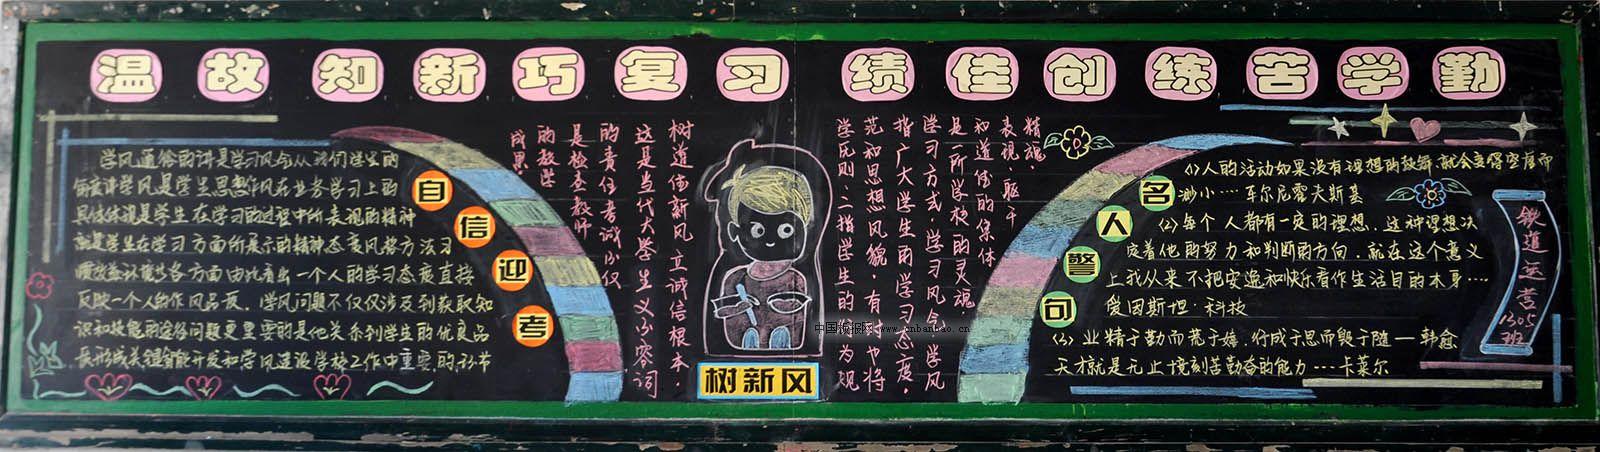 温故知新巧复习 绩佳创练苦学勤
学风通俗的讲是学习风气从我们学生的
角度讲学风是学生思想作风在业务学习上的
具体体现是学生在学习的过程中所表现的精神
就是学生在学习方面所展示的精神态度风格方法习
惯效益环境等各方面由此看出一个人的学习态度直接
反映一个人的作风品质.学风问题不仅仅涉及到获取知
识和技能的途径问题更重要的是他关系到学生的优良品
质形成关键智能开发和学风建设学校工作中重要的环节
自信迎考
树道德新风,立诚信根本,
这是当代大学生义不容词
的责任考试不仅
是检查教师
的教学
成果,
树新风
中国板报网 www.cnbanbao.cn
精魂,
表现,驱干
和道德的集体
是一所学校的灵魂,
学习方式,学习风气,学风
指广大学生的学习态度,
范和思想风貌,有时也将
学风则:二指学生的行为规
名人警句
(1)人的活动如果没有理想的鼓舞,就会变得空虚而
渺小…车尔尼雪夫斯基
(2)每个人都有一定的理想,这种理想决
定着他的努力和判断的方向.就在这个意义
上我从来不把安逸和快乐看作生活目的本身…
爱因斯坦·科技
(3)业精于勤而荒于嬉,行成于思而毁于随—韩愈
天才就是无止境刻苦勤奋的能力…卡莱尔
铁道运营
1305
班